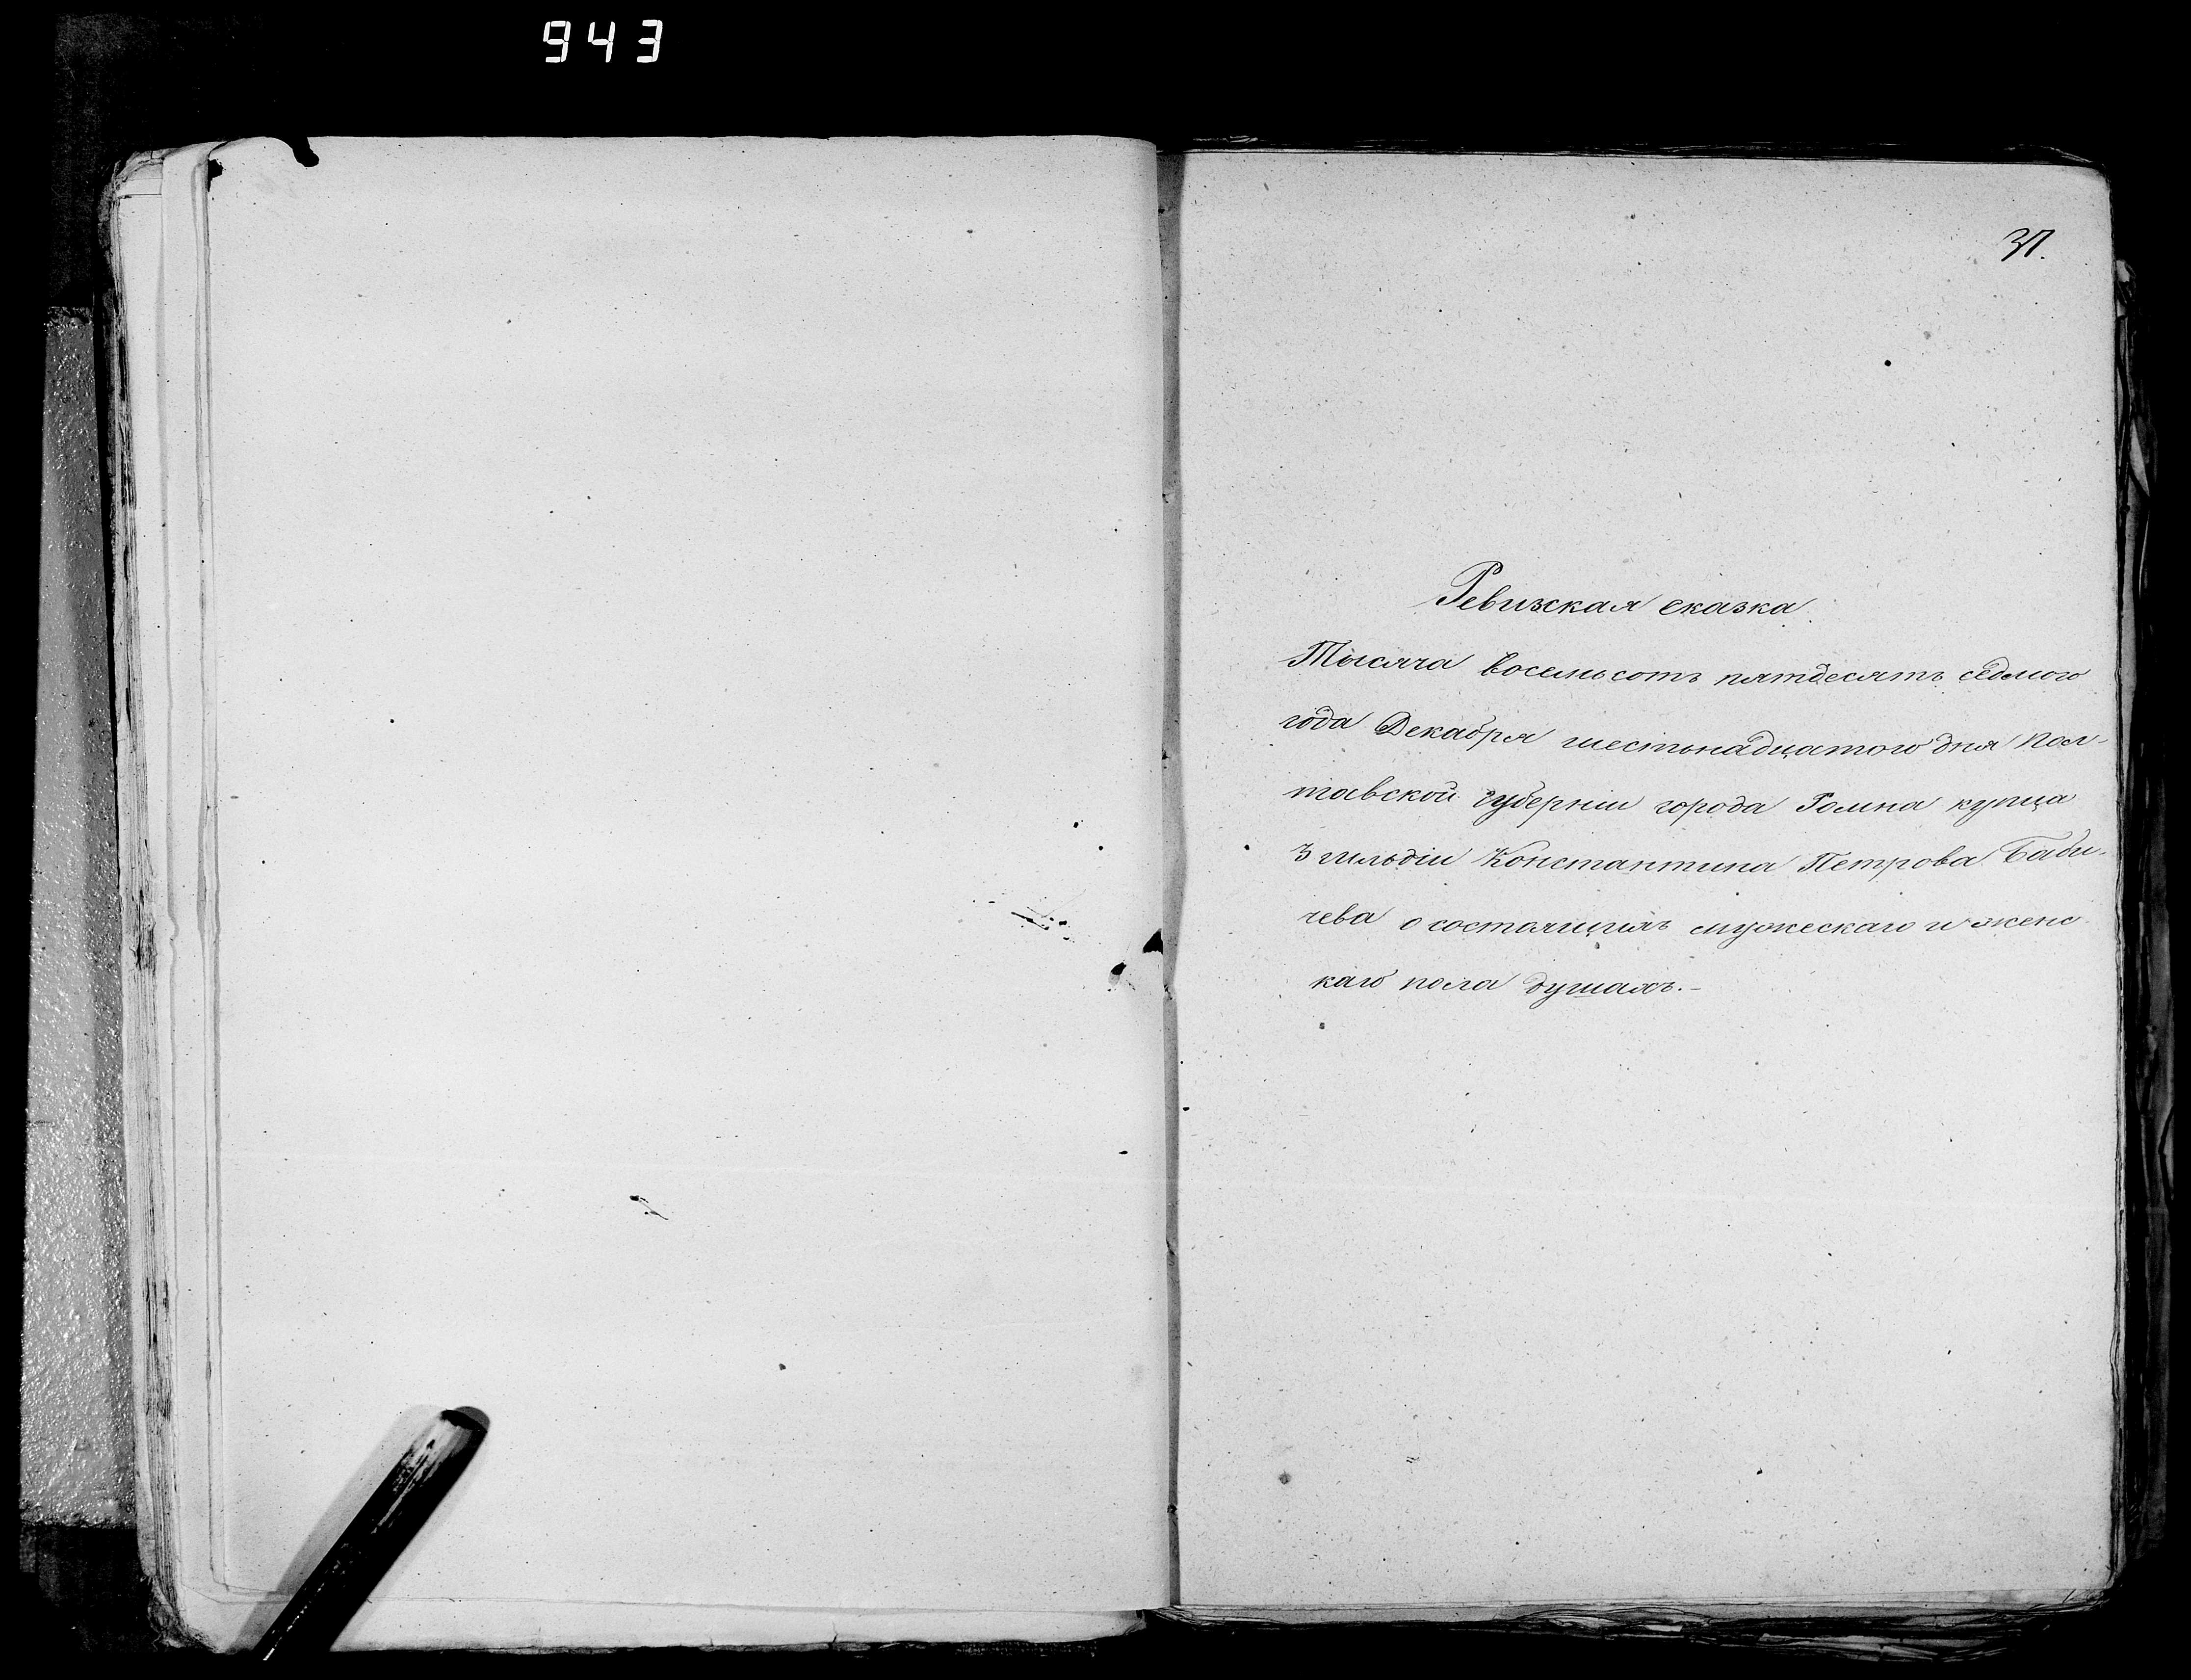 943
37.
Ревизская сказка
Тысяча восемьсотъ пятдесятъ седмого
года Декабря шестьнадцатого дня Пол-
тавской губерніи города Ромна купца
3 гильдіи Константина Петрова Баби-
чева о состоящихъ мужескаго и женс-
каго пола душахъ.-